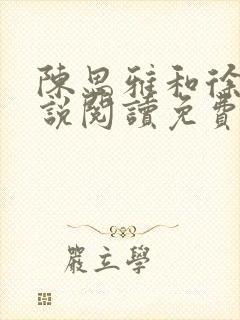 陳思雅和徐
說閱讀免費
嚴立學